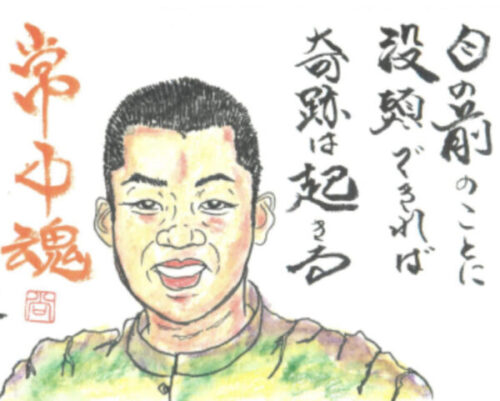 目の前のことに
没頭できれば
奇跡は起きる
常中魂
尚